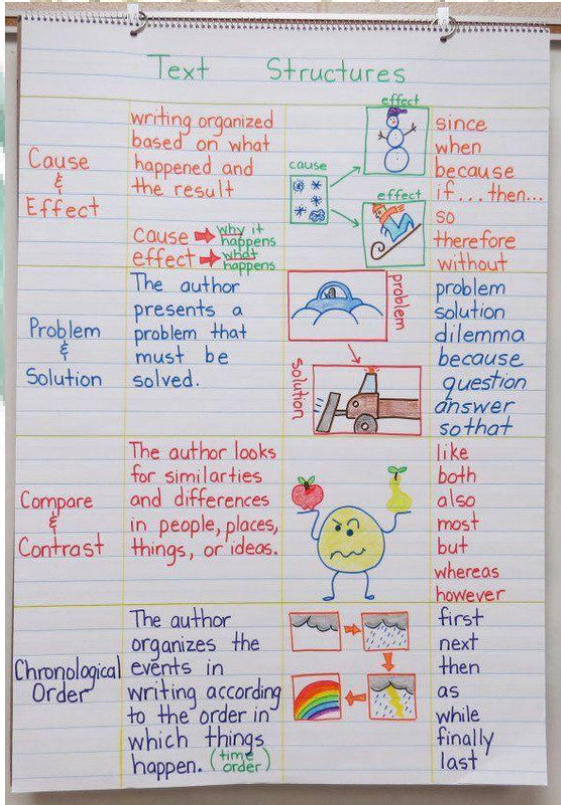 Text Structures
Cause
&
Effect
writing organized
based on what
happened and
the result
cause ➡ why it
happens
effect ➡ what
happens
cause
effect
effect
since
when
because
if...then...
so
therefore
without
Problem
&
Solution
The author
presents a
problem that
must be
solved.
problem
solution
problem
solution
dilemma
because
question
answer
so that
Compare
&
Contrast
The author looks
for similarties
and differences
in people, places,
things, or ideas.
like
both
also
most
but
whereas
however
Chronological
Order
The author
organizes the
events in
writing according
to the order in
which things
happen. (time
order)
first
next
then
as
while
finally
last